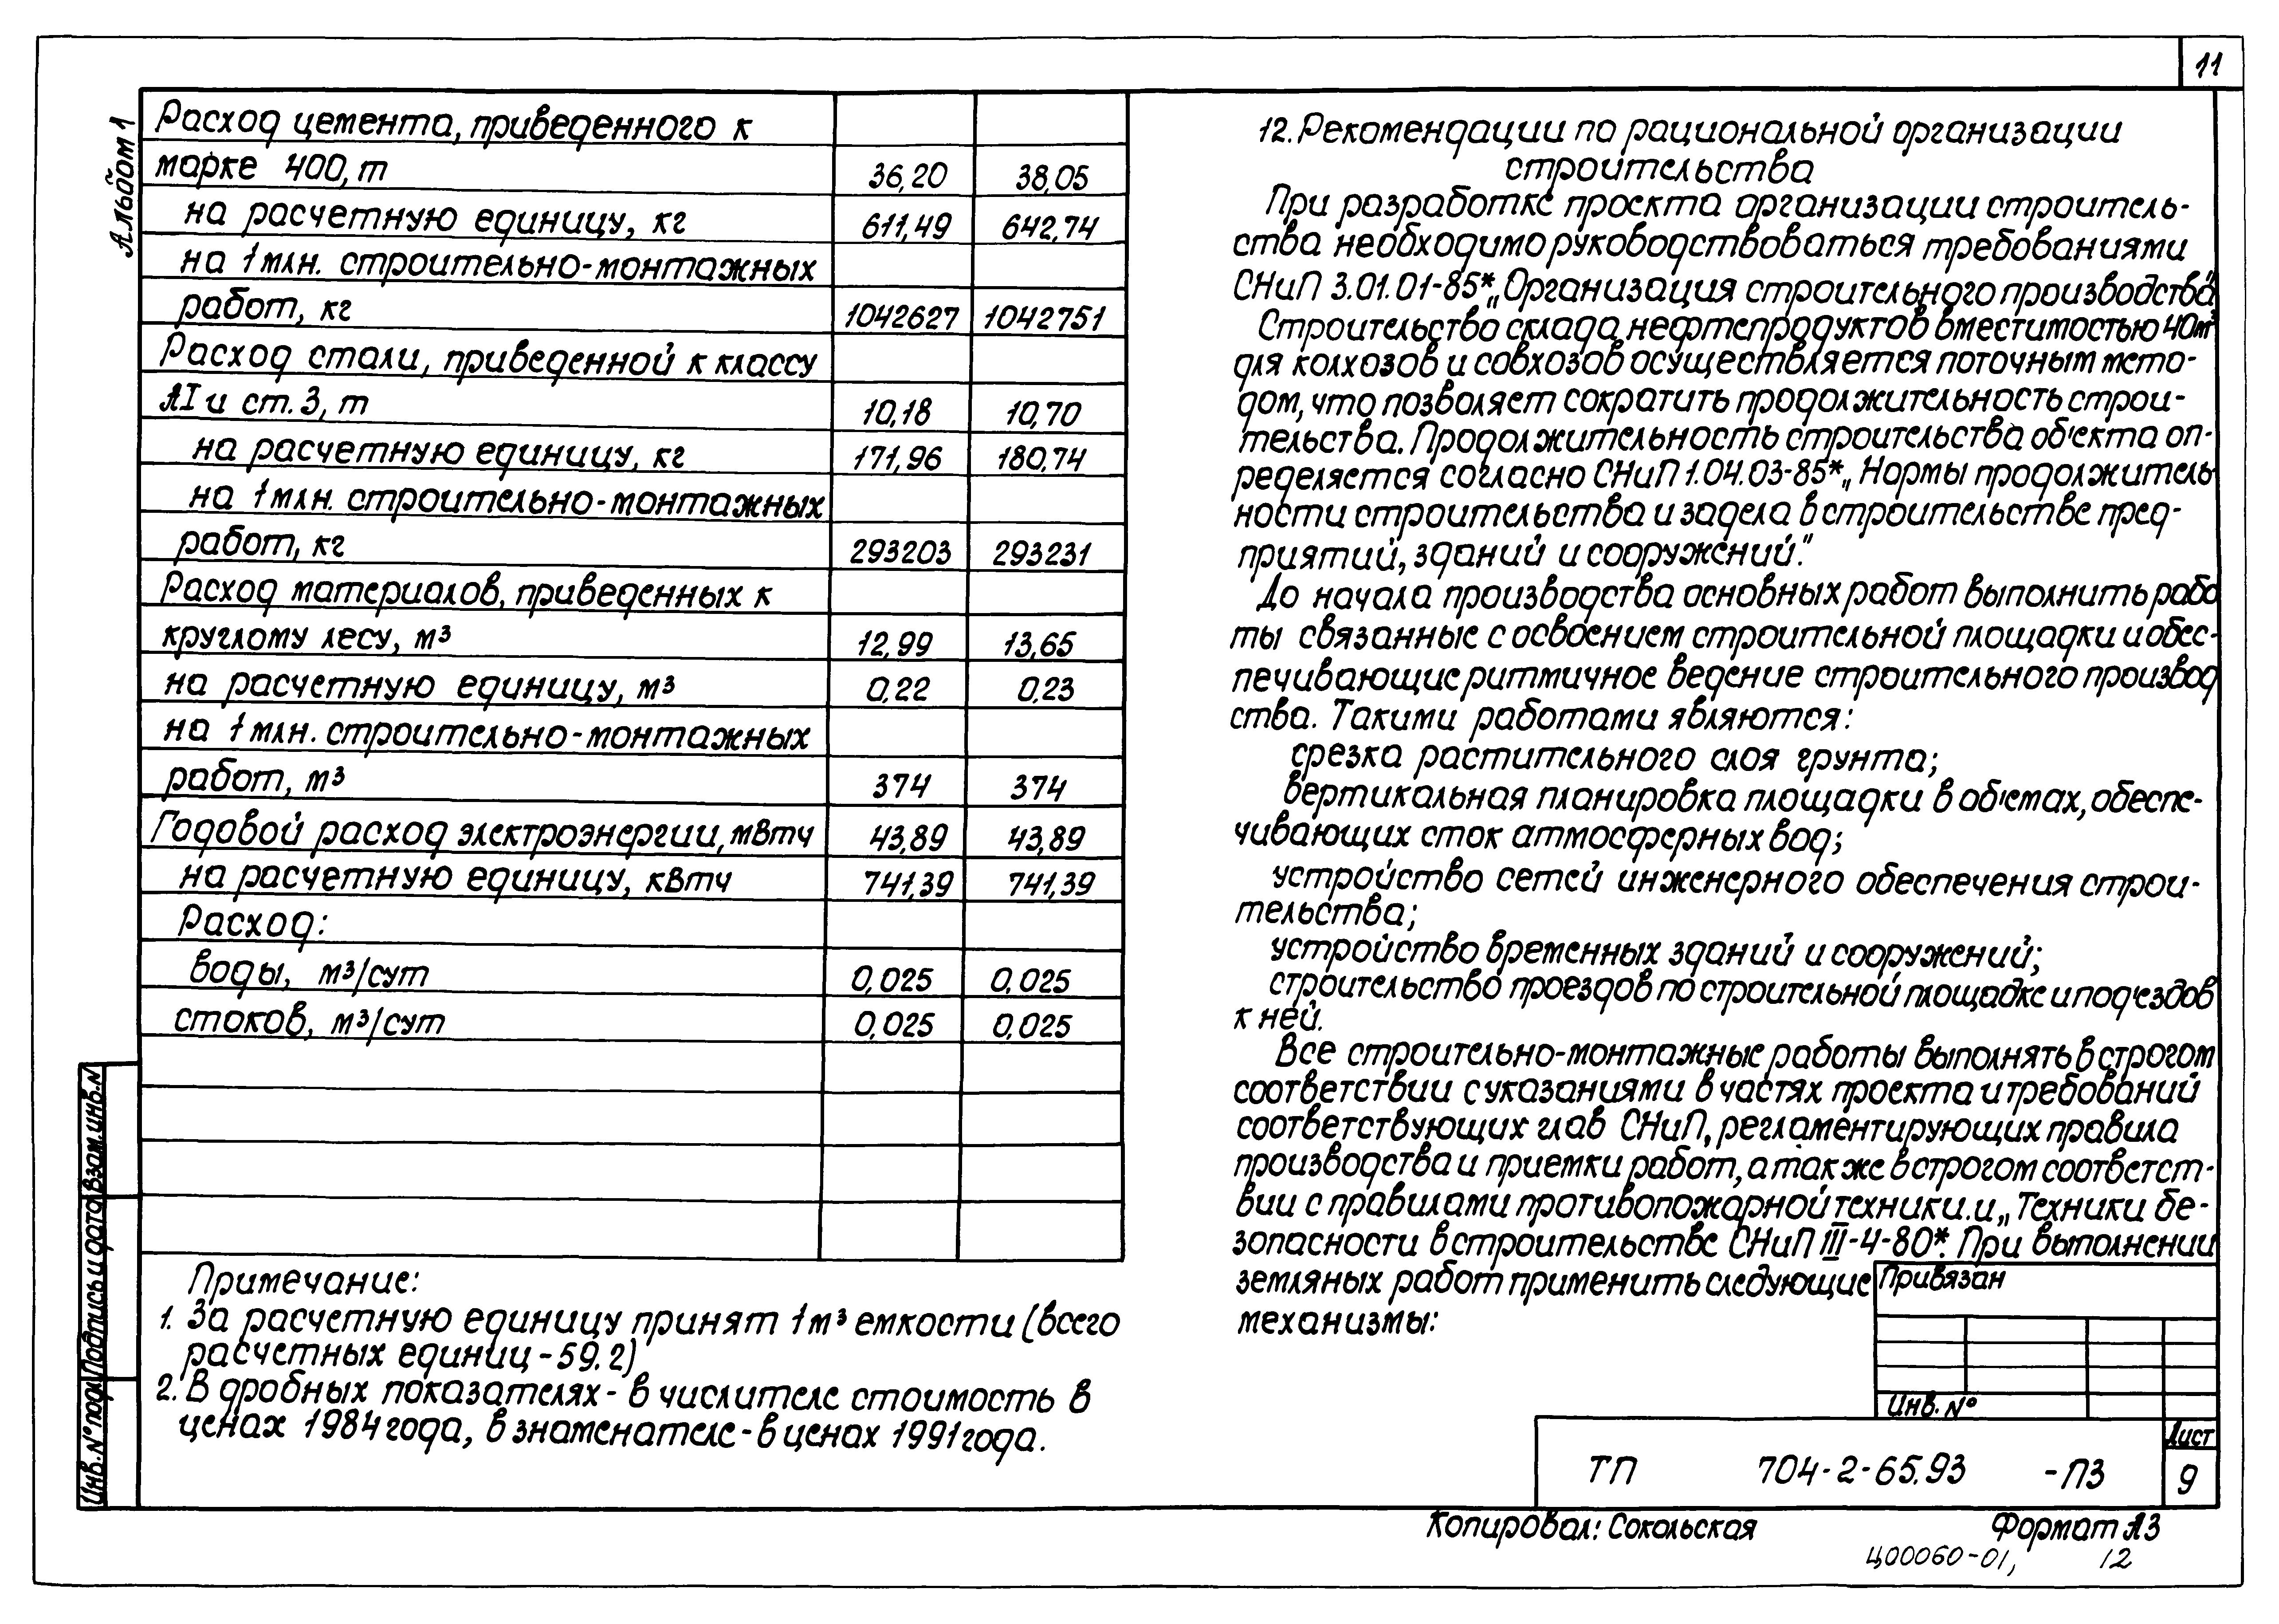 11
Альбом 1
Расход цемента, приведенного к
марке 400, т 36,20 38,05
на расчетную единицу, кг 611,49 642,74
на 1 млн. строительно-монтажных
работ, кг 1042627 1042751
Расход стали, приведенной к классу
АI и ст. 3, т 10,18 10,70
на расчетную единицу, кг 171,96 180,74
на 1 млн. строительно-монтажных
работ, кг 293203 293231
Расход материалов, приведенных к
круглому лесу, м³ 12,99 13,65
на расчетную единицу, м³ 0,22 0,23
на 1 млн. строительно-монтажных
работ, м³ 374 374
Годовой расход электроэнергии, мВтч 43,89 43,89
на расчетную единицу, кВтч 741,39 741,39
Расход:
воды, м³/сут 0,025 0,025
стоков, м³/сут 0,025 0,025
Примечание:
1. За расчетную единицу принят 1 м³ емкости (всего
расчетных единиц - 59.2)
2. В дробных показателях - в числителе стоимость в
ценах 1984 года, в знаменателе - в ценах 1991 года.
12. Рекомендации по рациональной организации
строительства
При разработке проекта организации строитель-
ства необходимо руководствоваться требованиями
СНиП 3.01.01-85* „Организация строительного производства"
Строительство склада нефтепродуктов вместимостью 40м³
для колхозов и совхозов осуществляется поточным мето-
дом, что позволяет сократить продолжительность строи-
тельства. Продолжительность строительства объекта оп-
ределяется согласно СНиП 1.04.03-85* „Нормы продолжитель
ности строительства и задела в строительстве пред-
приятий, зданий и сооружений."
До начала производства основных работ выполнить рабо
ты связанные с освоением строительной площадки и обес-
печивающие ритмичное ведение строительного производ
ства. Такими работами являются:
срезка растительного слоя грунта;
вертикальная планировка площадки в объемах, обеспе-
чивающих сток атмосферных вод;
устройство сетей инженерного обеспечения строи-
тельства;
устройство временных зданий и сооружений;
строительство проездов по строительной площадке и подъездов
к ней.
Все строительно-монтажные работы выполнять в строгом
соответствии с указаниями в частях проекта и требований
соответствующих глав СНиП, регламентирующих правила
производства и приемки работ, а так же в строгом соответст-
вии с правилами противопожарной техники. и „Техники бе-
зопасности в строительстве СНиП III-4-80*. При выполнении
земляных работ применить следующие
механизмы:
Привязан
Инв. №
ТП 704-2-65.93 -ПЗ
Лист
9
Инв. № подл. Подпись и дата Взам. инв. №
Копировал: Сокольская Формат А3
Ц00060-01, 12